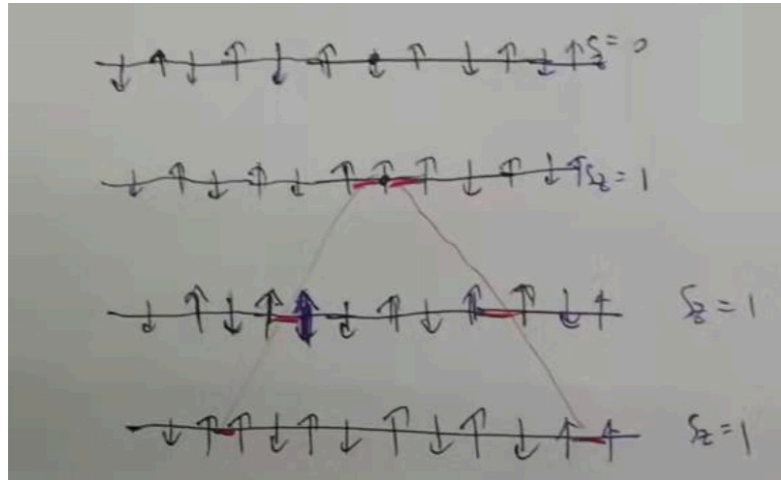 S=0
S_z=1
S_z=1
S_z=1